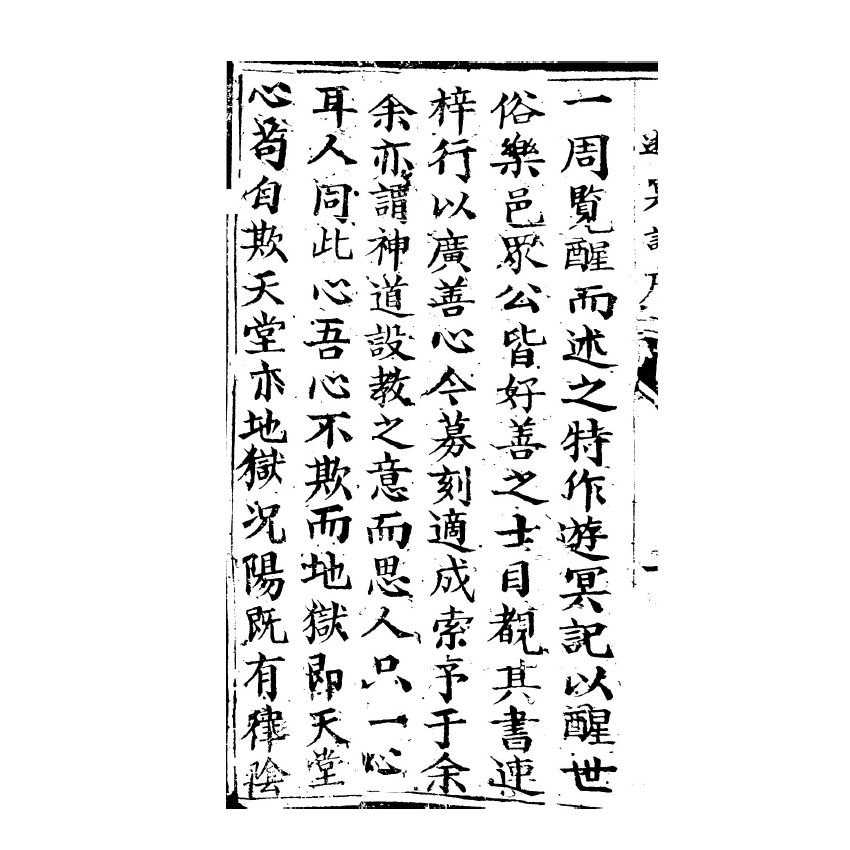 一周覧醒而述之特作遊冥記以醒世
俗樂邑眾公皆好善之士目覩其書連
梓行以廣善心今募刻適成索予于余
余亦謂神道設教之意而思人只一心
耳人同此心吾心不欺而地獄即天堂
心苟自欺天堂亦地獄况陽既有律陰